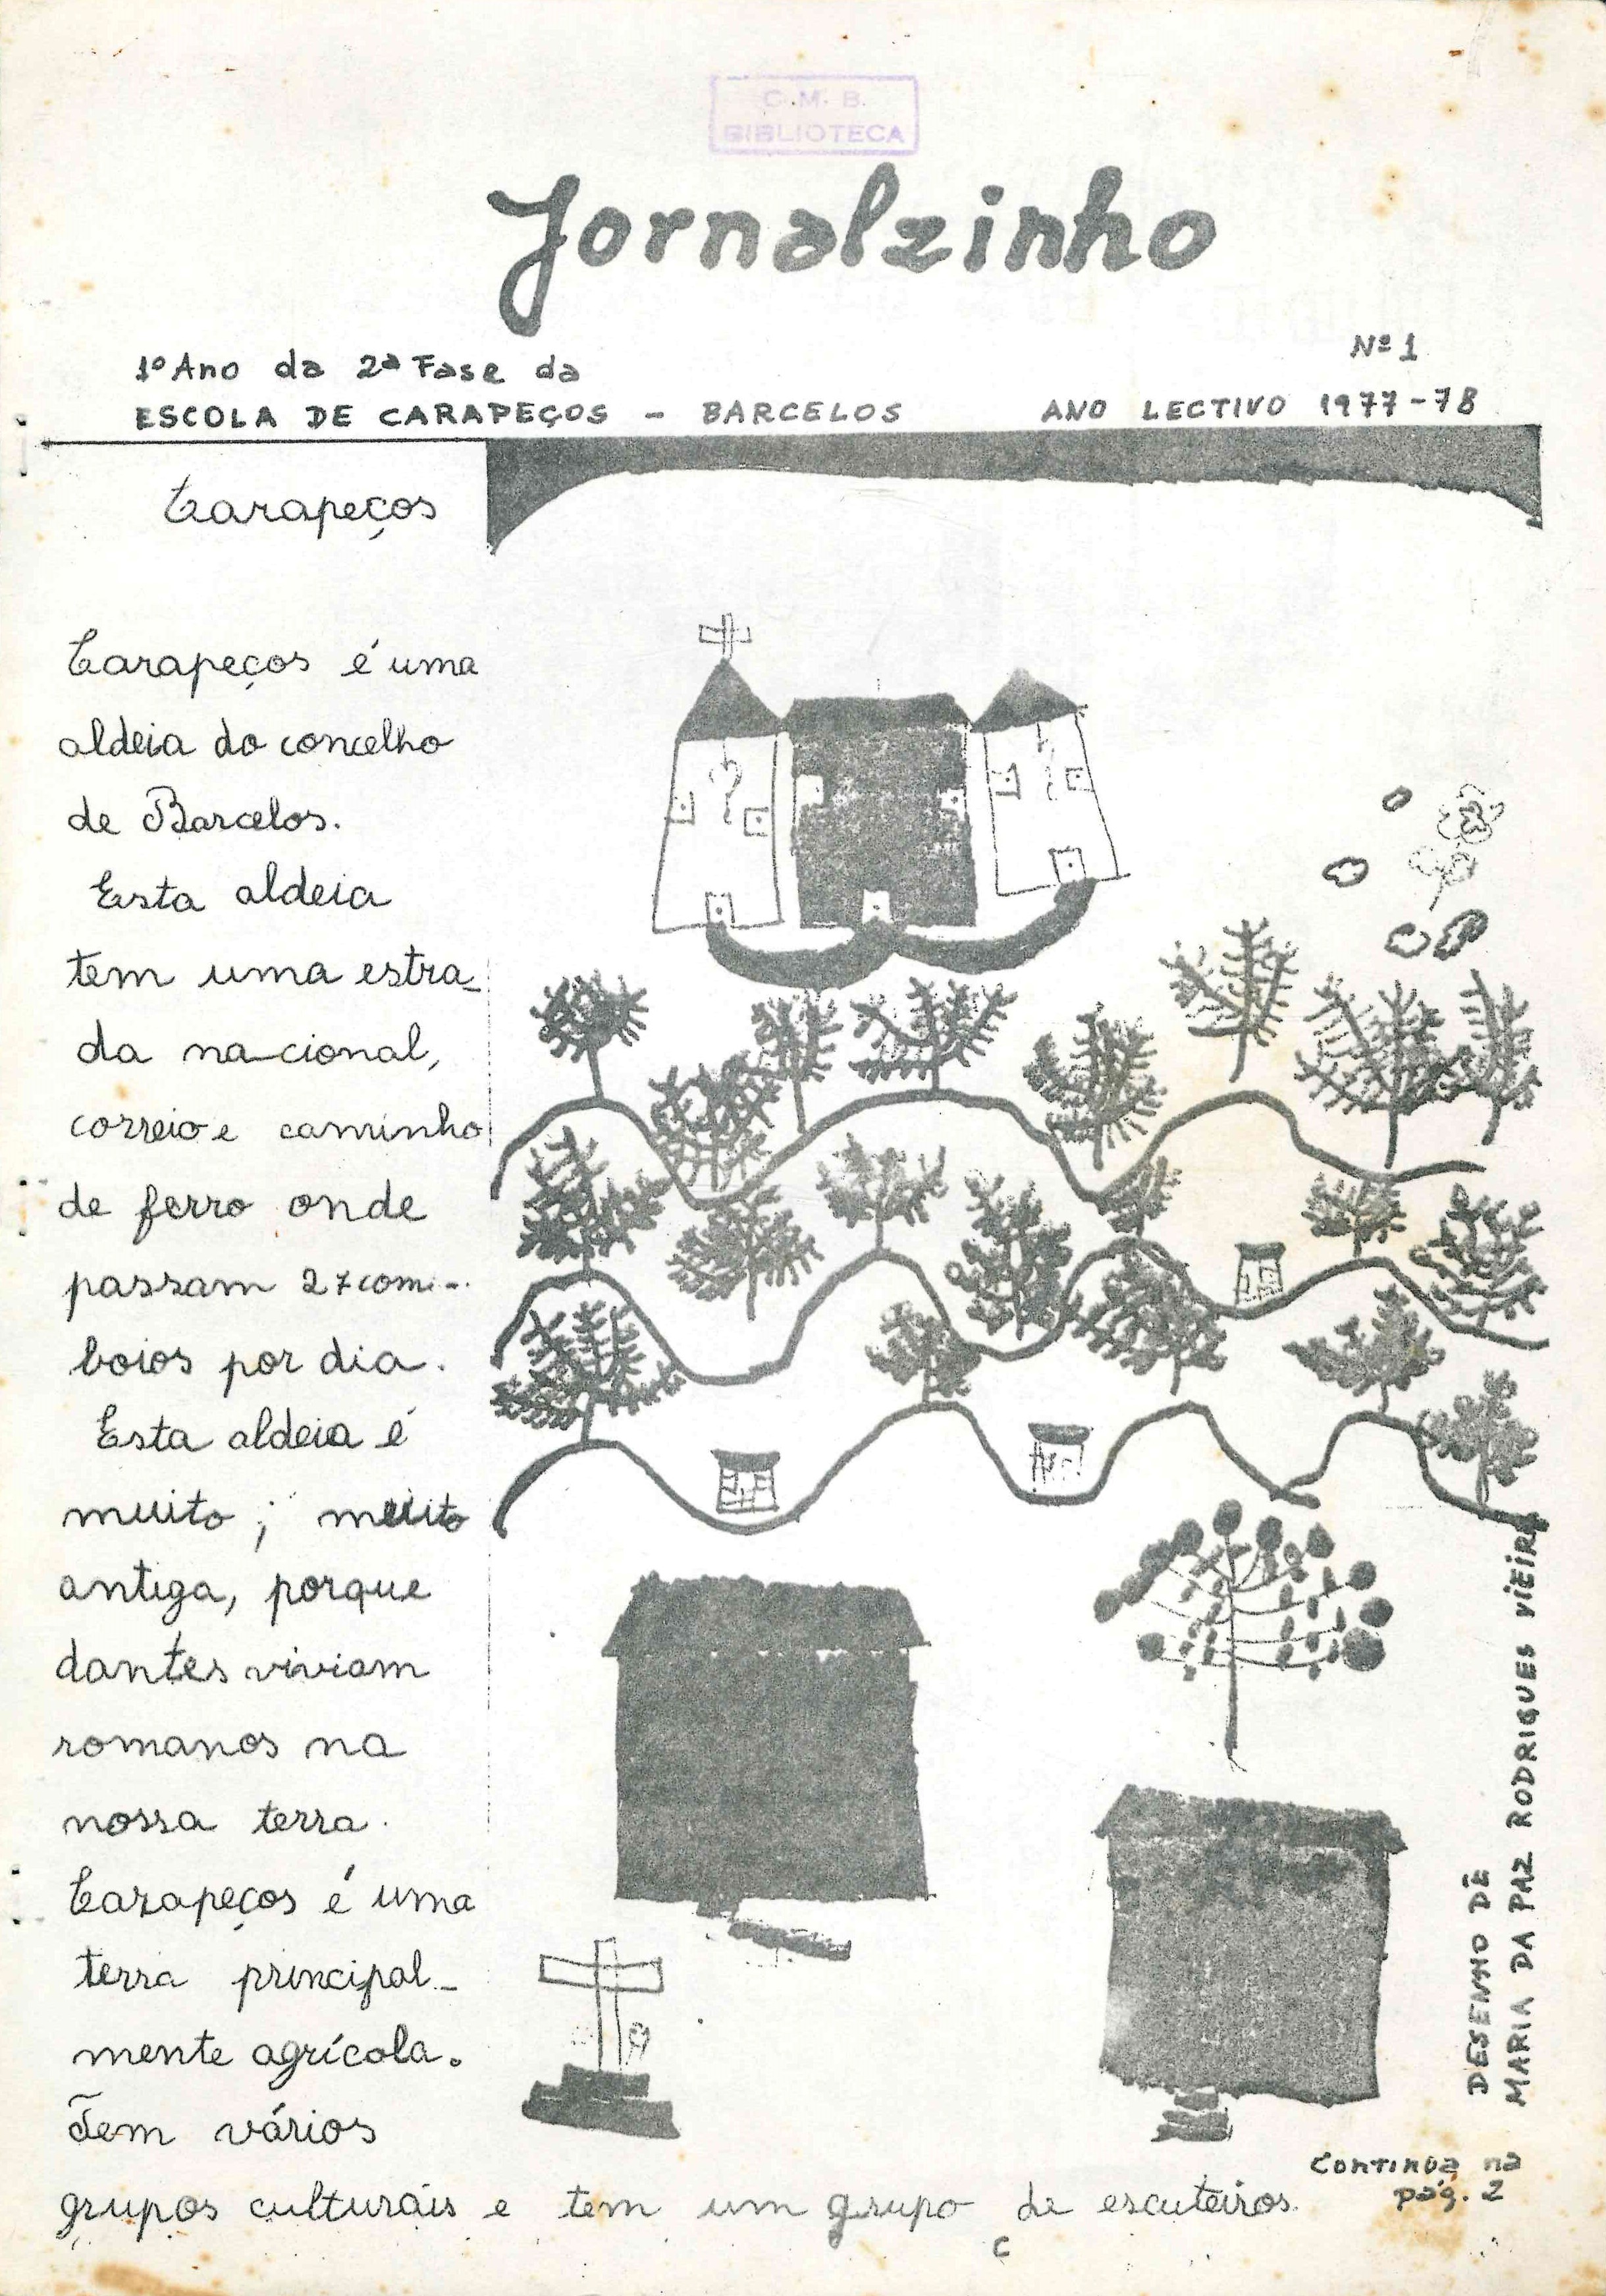 C.M.B.
BIBLIOTECA
Jornalzinho
Nº 1
1º Ano da 2ª Fase da
ESCOLA DE CARAPEÇOS - BARCELOS ANO LECTIVO 1977-78
Carapeços
Carapeços é uma
aldeia do concelho
de Barcelos.
Esta aldeia
tem uma estra_
da nacional,
correio e caminho
de ferro onde
passam 27 com-
boios por dia.
Esta aldeia é
muito; muito
antiga, porque
dantes viviam
romanos na
nossa terra.
Carapeços é uma
terra principal_
mente agrícola.
Tem vários
grupos culturais e tem um grupo de escuteiros.
DESENHO DE
MARIA DA PAZ RODRIGUES VIEIRA
Continua na
pág. 2
C